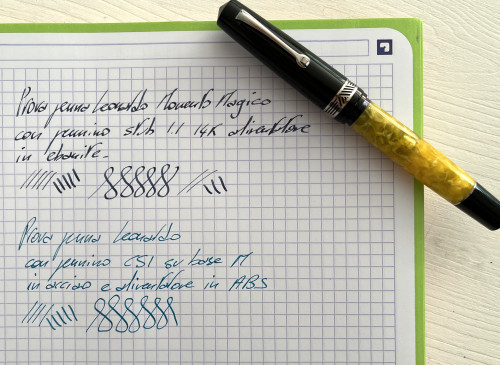 Prova penna Leonardo Momento Magico
con pennino stub 1.1 14K alimentatore
in ebanite.
Prova penna Leonardo
con pennino CSI su base M
in acciaio e alimentatore in ABS